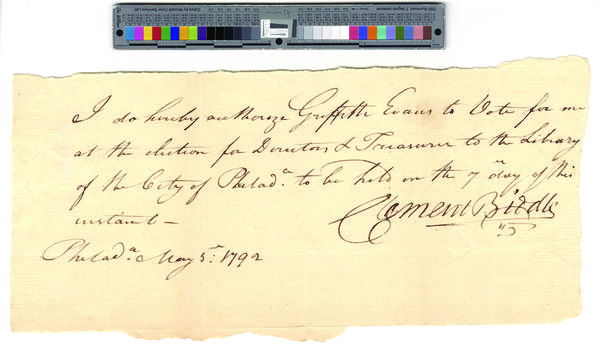 I do hereby authorize Griffith Evans to Vote for me
at the election for Directors & Treasurer to the Library
of the City of Philad.a to be held on the 7th day of this
instant —
Clement Biddle
Philad.a May 5th 1792